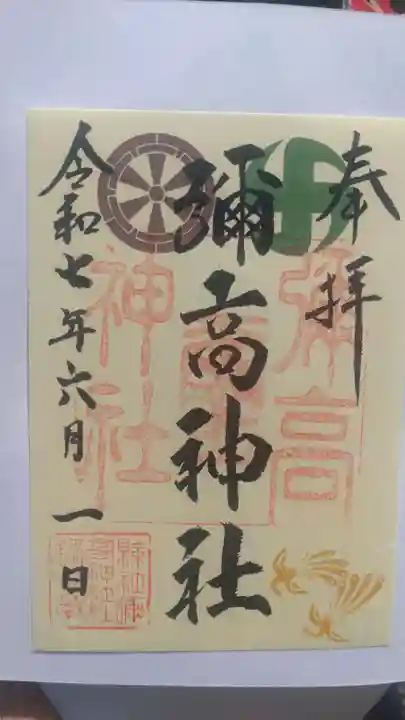 奉拝
彌高神社
令和七年六月一日
彌高
神社